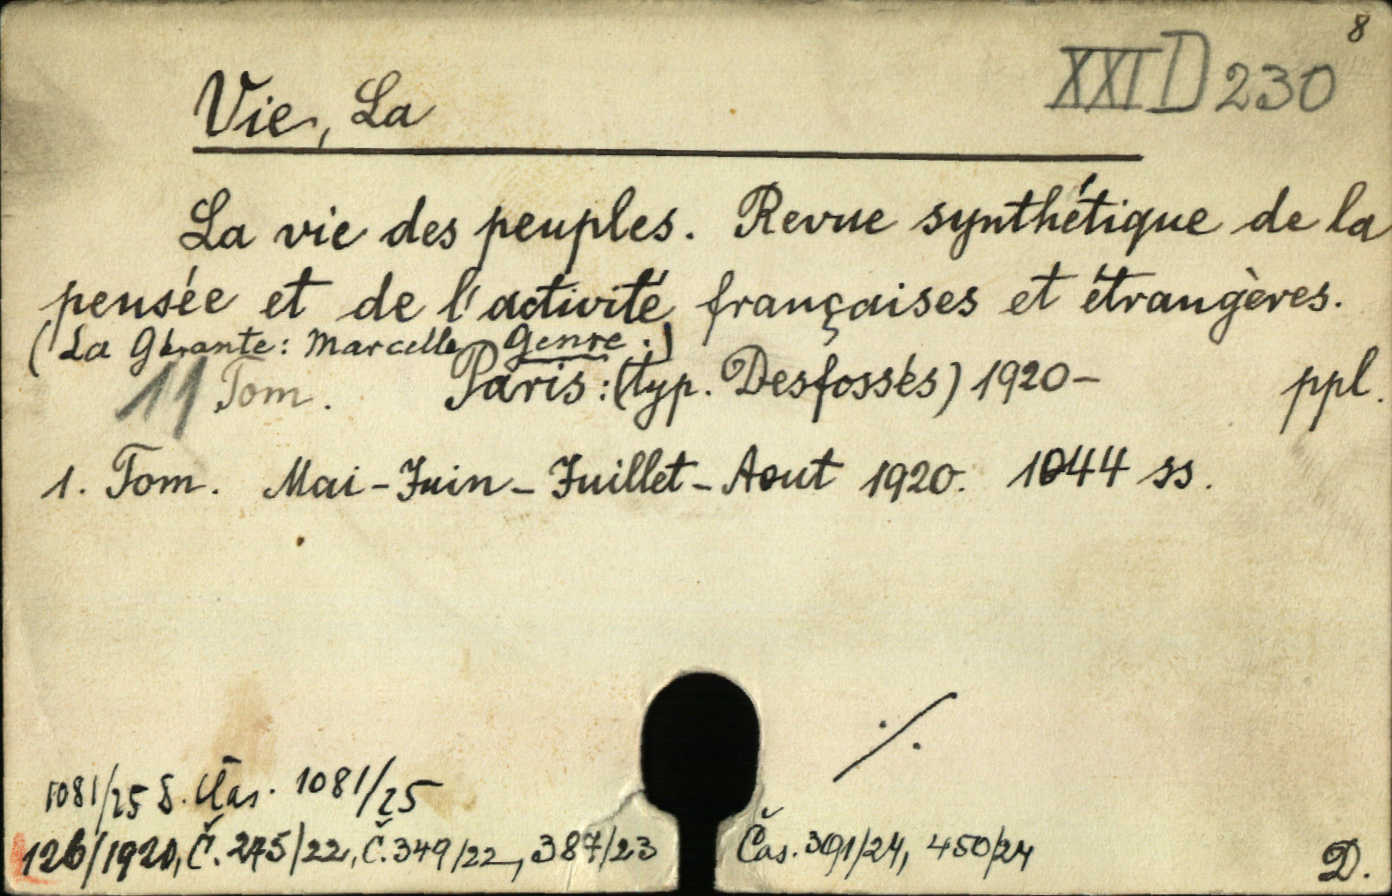 8
XXI D 230
Vie, La
La vie des peuples. Revue synthétique de la
pensée et de l'activité françaises et étrangères.
(La Gérante: Marcelle Genre.)
11 Tom. Paris: (typ. Desfossés) 1920- ppl.
1. Tom. Mai-Juin-Juillet-Aout 1920. 1044 ss.
./.
1081/25 1081/25
126/1920, Č. 275/22, Č. 349/22, 387/23 Čas. 301/24, 450/24
D.